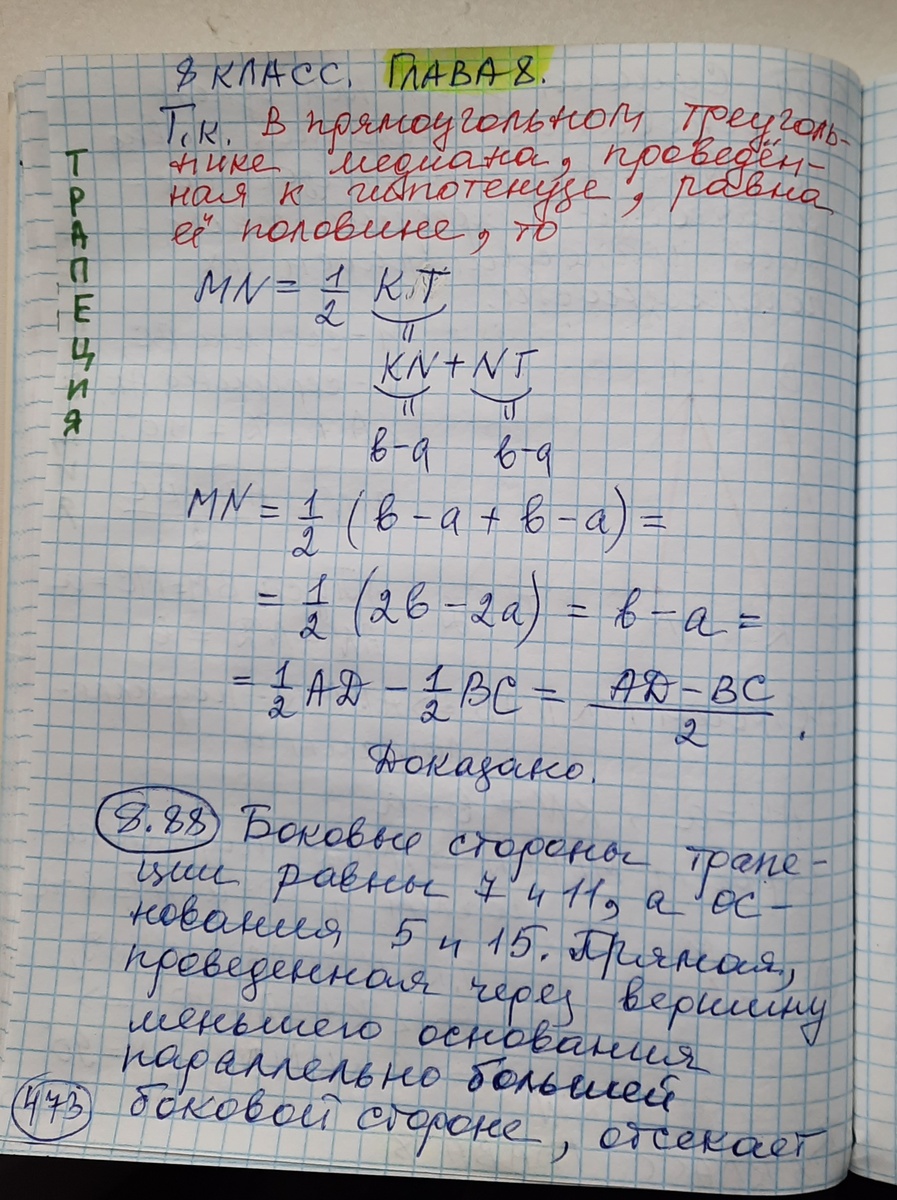 8 КЛАСС. ГЛАВА 8.
ТРАПЕЦИЯ
Т.к. в прямоугольном треуголь-
нике медиана, проведён-
ная к гипотенузе, равна
её половине, то
MN = 1/2 KT
=
KN + NT
= =
в-a в-a
MN = 1/2 (в - a + в - a) =
= 1/2 (2в - 2a) = в - a =
= 1/2 AD - 1/2 BC = (AD - BC)/2 .
Доказано.
8.88 Боковые стороны трапе-
ции равны 7 и 11, а ос-
нования 5 и 15. Прямая,
проведенная через вершину
меньшего основания
параллельно большей
473 боковой стороне, отсекает